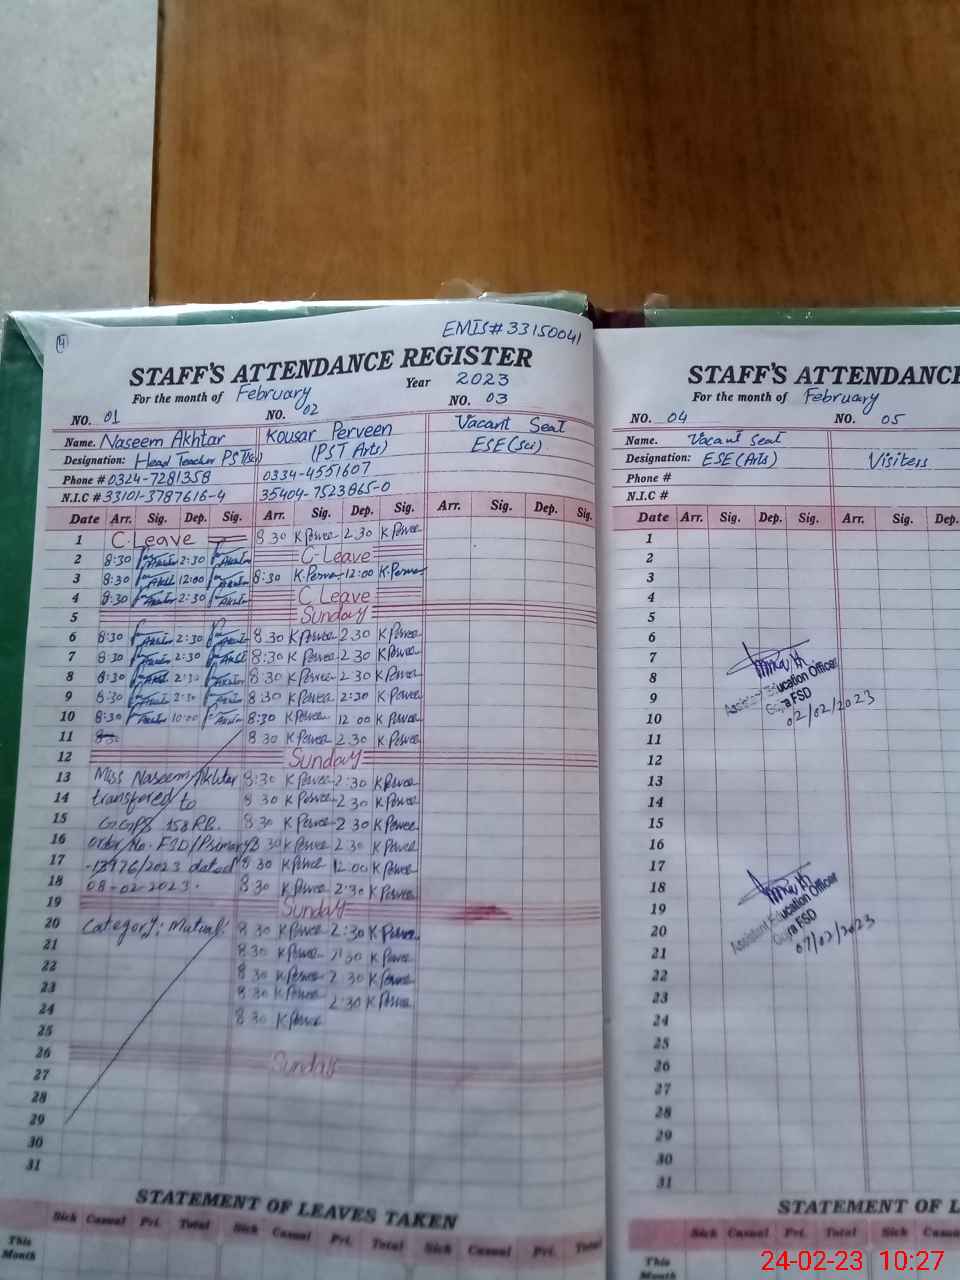 4
EMIS# 33150041
STAFF'S ATTENDANCE REGISTER
For the month of February Year 2023
NO. 01 NO. 02 NO. 03
Name. Naseem Akhtar Kousar Perveen Vacant Seat
Designation: Head Teacher PST(Sci) (PST Arts) ESE(Sci)
Phone # 0324-7281358 0334-4551607
N.I.C # 33101-3787616-4 35404-7523865-0
Date Arr. Sig. Dep. Sig. Arr. Sig. Dep. Sig. Arr. Sig. Dep. Sig.
1 C.Leave 8 30 K Pervee 2.30 K Pervee
2 8:30 Akhtar 2:30 Akhtar C-Leave
3 8:30 12:00 8:30 K.Pervee 12:00 K.Pervee
4 8:30 Akhtar 2:30 Akhtar C Leave
5 Sunday
6 8:30 Akhtar 2:30 Akhtar 8.30 K Pervee 2.30 K Pervee
7 8:30 Akhtar 2:30 8:30 K Pervee 2 30 K Pervee
8 8:30 2:30 8:30 K Pervee 2 30 K Pervee
9 8:30 2:30 8:30 K Pervee 2:30 K Pervee
10 8:30 10:00 8:30 K Pervee 12 00 K Pervee
11 8 30 K Pervee 2.30 K Pervee
12 Sunday
13 Miss Naseem Akhtar 8:30 K Pervee 2:30 K Pervee
14 transfered to 8 30 K Pervee 2 30 K Pervee
15 G.GPS 158 RB. 8:30 K Pervee 2 30 K Pervee
16 order No. FSD/Primary 8 30 K Pervee 2:30 K Pervee
17 /2023 dated 8 30 K Pervee 12.00 K Pervee
18 08-02-2023. 8 30 K Pervee 2:30 K Pervee
19 Sunday
20 Category: Mutual. 8 30 K Pervee 2:30 K Pervee
21 8 30 K Pervee 2:30 K Pervee
22 8 30 K Pervee 2 30 K Pervee
23 8 30 K Pervee 2:30 K Pervee
24 8 30 K Pervee
25
26 Sunday
27
28
29
30
31
STATEMENT OF LEAVES TAKEN
Sick Casual Pri. Total Sick Casual Pri. Total Sick Casual Pri. Total
This
Month
STAFF'S ATTENDANCE
For the month of February
NO. 04 NO. 05
Name. Vacant Seat
Designation: ESE(Arts) Visiters
Phone #
N.I.C #
Date Arr. Sig. Dep. Sig. Arr. Sig. Dep.
1
2
3
4
5
6
7
8 Assistant Education Officer
9 FSD
10 02/02/2023
11
12
13
14
15
16
17
18
19 Assistant Education Officer
20 FSD
21 07/02/2023
22
23
24
25
26
27
28
29
30
31
STATEMENT OF L
Sick Casual Pri. Total Sick Casual
This
Month
24-02-23 10:27